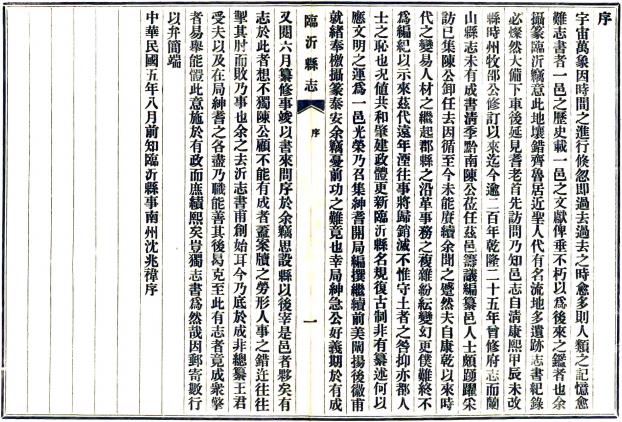 序
宇宙萬象因時間之進行倏忽即過去過去之時愈多則人類之記憶愈
難志書者一邑之歷史載一邑之文獻俾垂不朽以爲後來之鑑者也余
攝篆臨沂竊意此地壤錯齊魯居近聖人代有名流地多遺跡志書紀錄
必燦然大備下車後延見耆老首先訪問乃知邑志自清康熙甲辰未改
縣時州牧邵公修訂以來迄今逾二百年乾隆二十五年曾修府志而蘭
山縣志未有成書清季黔南陳公蒞任茲邑籌議編纂邑人士頗踴躍采
訪已集陳公卸任去因循至今未能賡續余聞之蹙然夫自康乾以來時
代之變易人材之繼起郡縣之沿革事務之複雜紛紜變幻更僕難終不
爲編紀以示來茲代遠年湮往事將歸銷滅不惟守土者之咎抑亦都人
士之恥也况値共和肇建政體更新臨沂縣名規復古制非有纂述何以
臨沂縣志 序 一
應文明之運爲一邑光榮乃召集紳耆開局編撰繼續前美闡揚後徽甫
就緒奉檄攝篆泰安余竊憂前功之難竟也幸局紳急公好義期於有成
又閱六月纂修事竣以書來問序於余竊思設縣以後宰是邑者夥矣有
志於此者想不獨陳公顧不能有成者蓋案牘之勞形人事之錯迕往往
掣其肘而敗乃事也余之去沂志書甫創始耳今乃底於成非總纂王君
受夫以及在局紳耆之各盡乃職能善其後曷克至此有志者竟成衆擎
者易舉能體此意施於有政而庶績熙矣豈獨志書爲然哉因郵寄數行
以弁簡端
中華民國五年八月前知臨沂縣事南州沈兆禕序